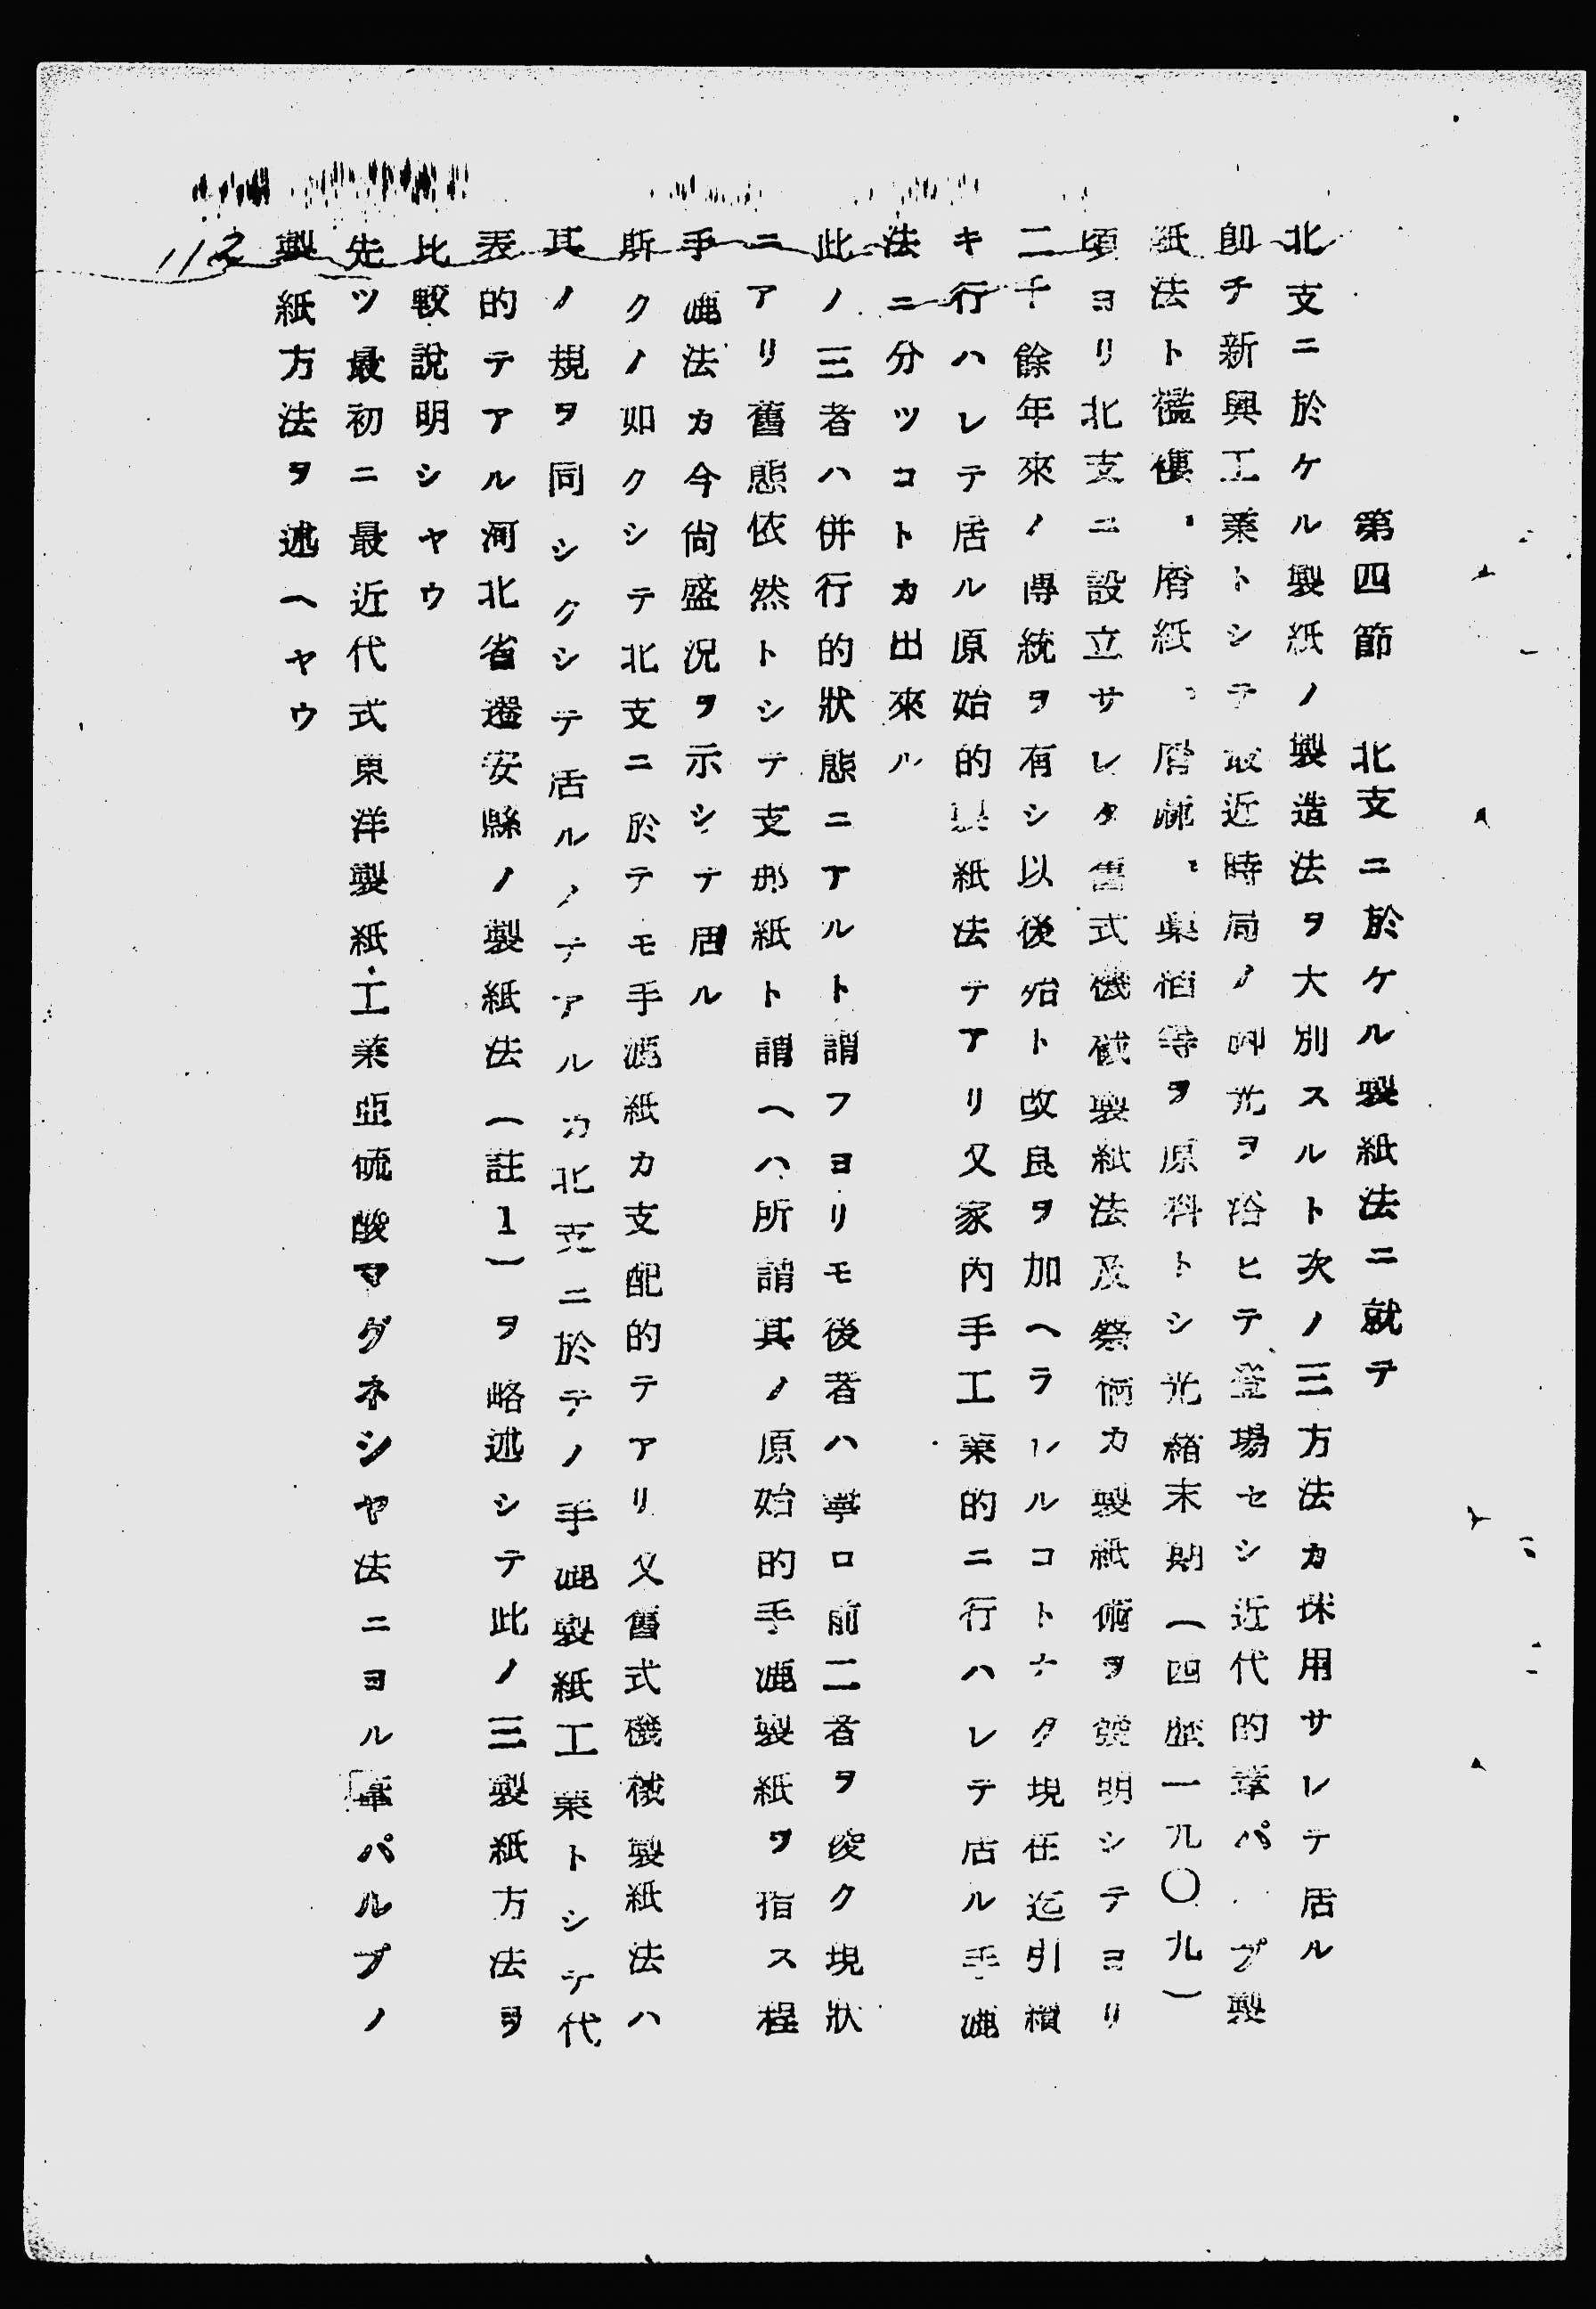 第四節　北支ニ於ケル製紙法ニ就テ
北支ニ於ケル製紙ノ製造法ヲ大別スルト次ノ三方法カ採用サレテ居ル
卽チ新興工業トシテ最近時局ノ脚光ヲ浴ヒテ登場セシ近代的葦パルプ製
紙法ト襤褸、屑紙、屑麻、藁稈等ヲ原料トシ光緖末期（西歴一九〇九）
頃ヨリ北支ニ設立サレタ舊式機械製紙法及蔡倫カ製紙術ヲ發明シテヨリ
二千餘年來ノ傳統ヲ有シ以後殆ト改良ヲ加ヘラレルコトナク現在迄引續
キ行ハレテ居ル原始的製紙法テアリ又家內手工業的ニ行ハレテ居ル手漉
法ニ分ツコトカ出來ル
此ノ三者ハ併行的狀態ニアルト謂フヨリモ後者ハ寧ロ前二者ヲ凌ク現狀
ニアリ舊態依然トシテ支那紙ト謂ヘハ所謂其ノ原始的手漉製紙ヲ指ス程
手漉法カ今尙盛況ヲ示シテ居ル
斯クノ如クシテ北支ニ於テモ手漉紙カ支配的テアリ又舊式機械製紙法ハ
其ノ規ヲ同シクシテ居ルノテアルカ北支ニ於テノ手漉製紙工業トシテ代
表的テアル河北省遷安縣ノ製紙法（註1）ヲ略述シテ此ノ三製紙方法ヲ
比較說明シヤウ
先ツ最初ニ最近代式東洋製紙工業亞硫酸マグネシヤ法ニヨル葦パルプノ
製紙方法ヲ述ヘヤウ
112